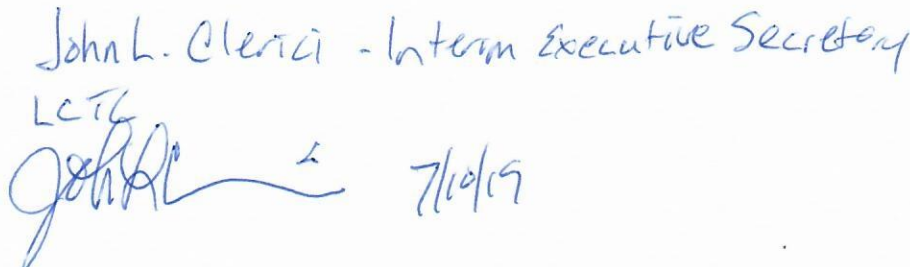 John L. Clerici - Interim Executive Secretary
LCTC
7/10/19